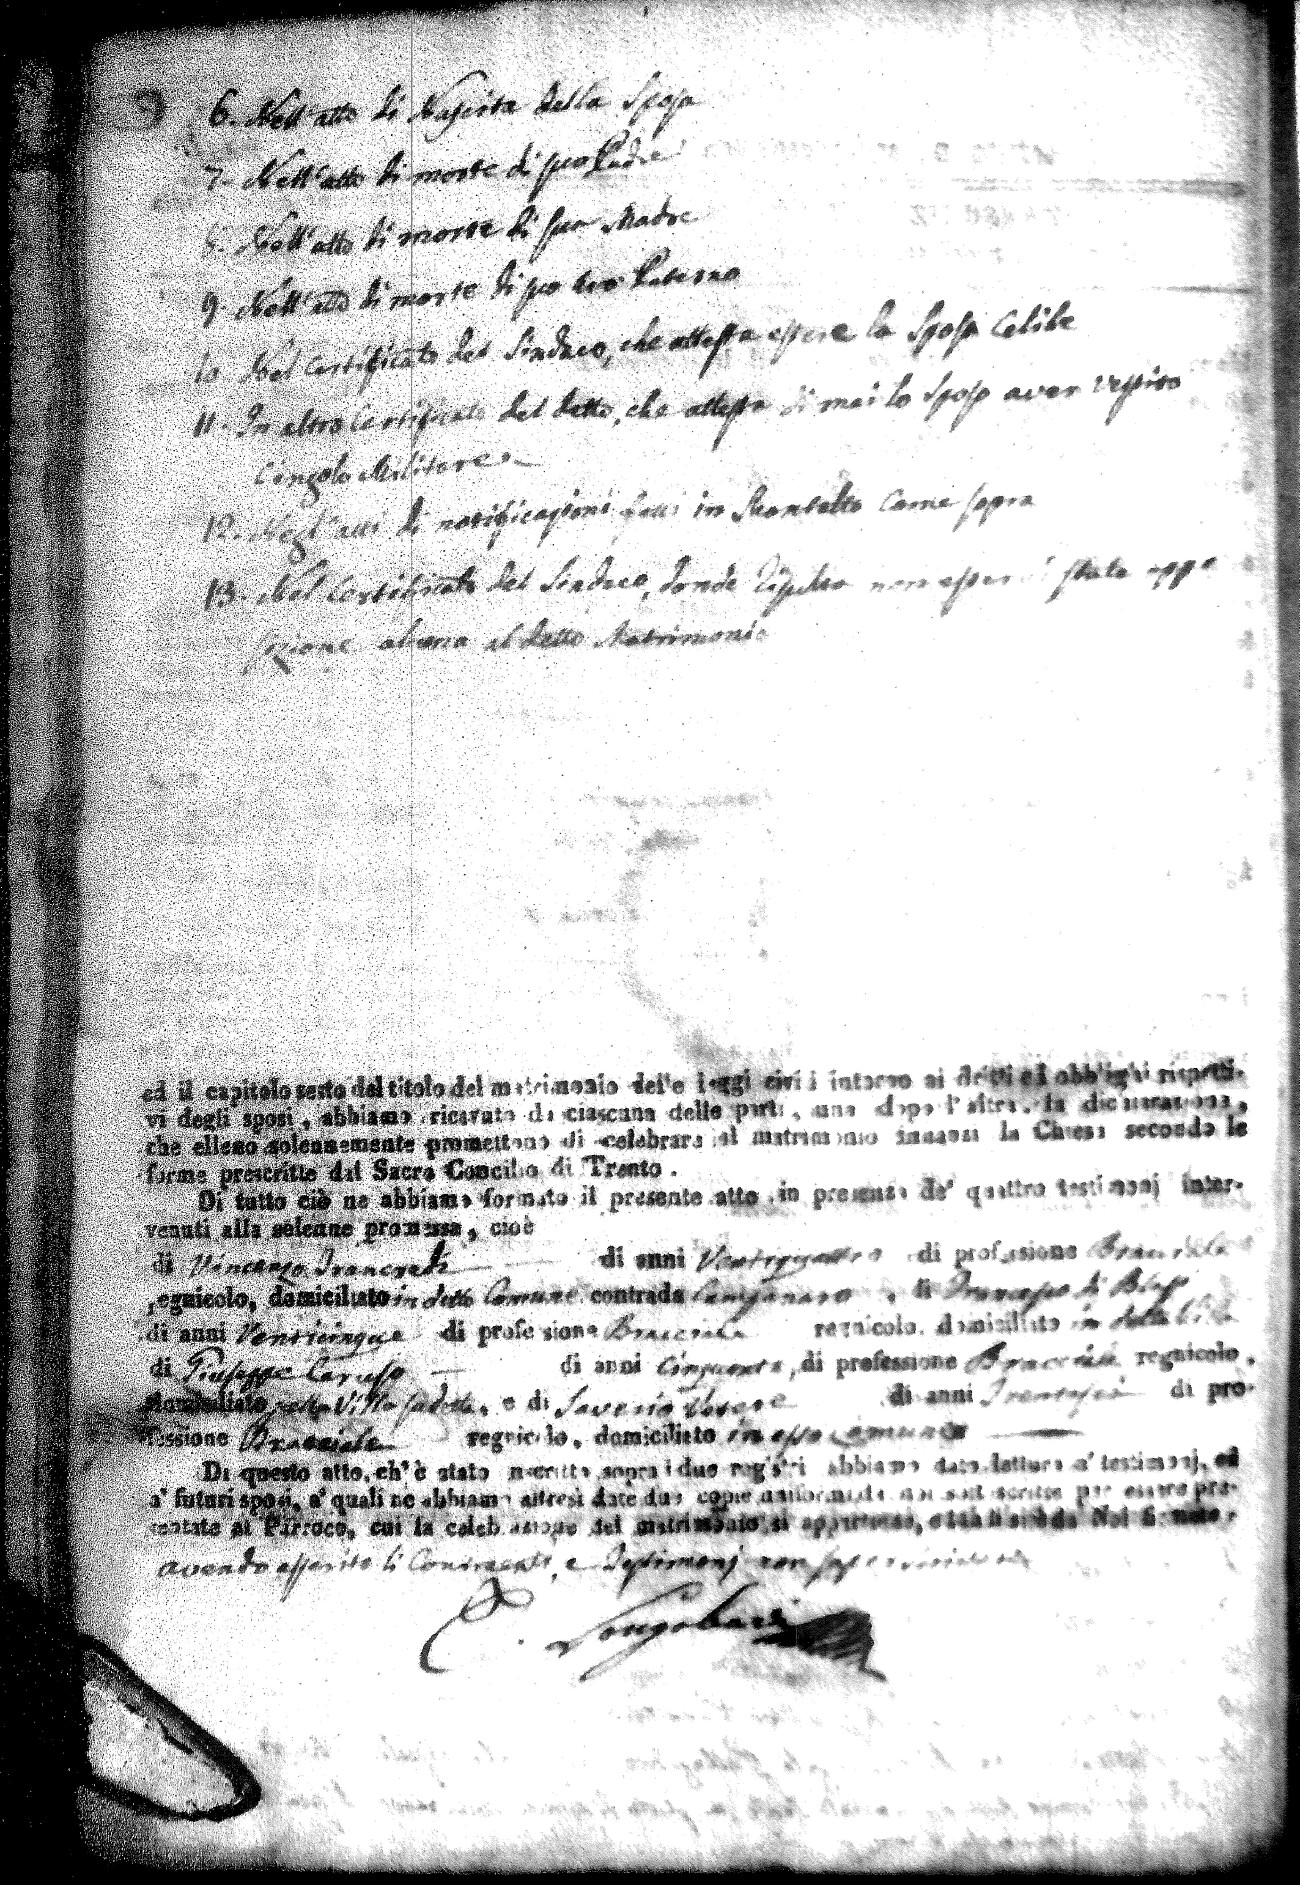 6. Nell'atto di Nascita della Sposa
7. Nell'atto di morte di suo Padre
8. Nell'atto di morte di sua Madre
9. Nell'atto di morte di suo Avo Paterno
10 Nel Certificato del Sindaco, che attesta essere la Sposa Celibe
11. In altro Certificato del detto, che attesta di mai lo Sposo aver vestito
Cingolo Militare
12. Negl'atti di notificazioni fatti in Montalto Come sopra
13. Nel Certificato del Sindaco, donde risulta non essere stata oppo
sizione alcuna al detto Matrimonio
ed il capitolo sesto del titolo del matrimonio delle leggi civili intorno ai dritti ed obblighi rispetti-
vi degli sposi, abbiamo ricavato da ciascuna delle parti, una dopo l'altra, la dichiarazione,
che elleno solennemente promettono di celebrare il matrimonio innanzi la Chiesa secondo le
forme prescritte dal Sacro Concilio di Trento.
Di tutto ciò ne abbiamo formato il presente atto in presenza de' quattro testimonj inter-
venuti alla solenne promessa, cioè
di Vincenzo di anni Ventiquattro di professione Bracciale
regnicolo, domiciliato in detto Comune contrada , di Francesco di Blasi
di anni Venticinque di professione Bracciale regnicolo. domiciliato in detta
di Giuseppe Caruso di anni cinquanta, di professione Bracciale regnicolo,
domiciliato , e di Saverio di anni Trentasei di pro-
fessione Bracciale regnicolo, domiciliato in esso Comune
Di questo atto, ch'è stato inscritto sopra i due registri abbiamo dato lettura a' testimonj, ed
a' futuri sposi, a' quali ne abbiamo altresì date due copie uniformi da noi sottoscritte per essere pre-
sentate al Parroco, cui la celebrazione del matrimonio si appartiene, e
avendo asserito li Contraenti, e Testimonj non saper scrivere